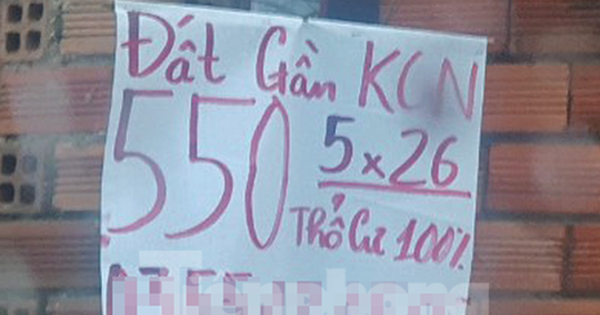 Đất Gần KCN
550 5x26
Thổ Cư 100%
Tienphong